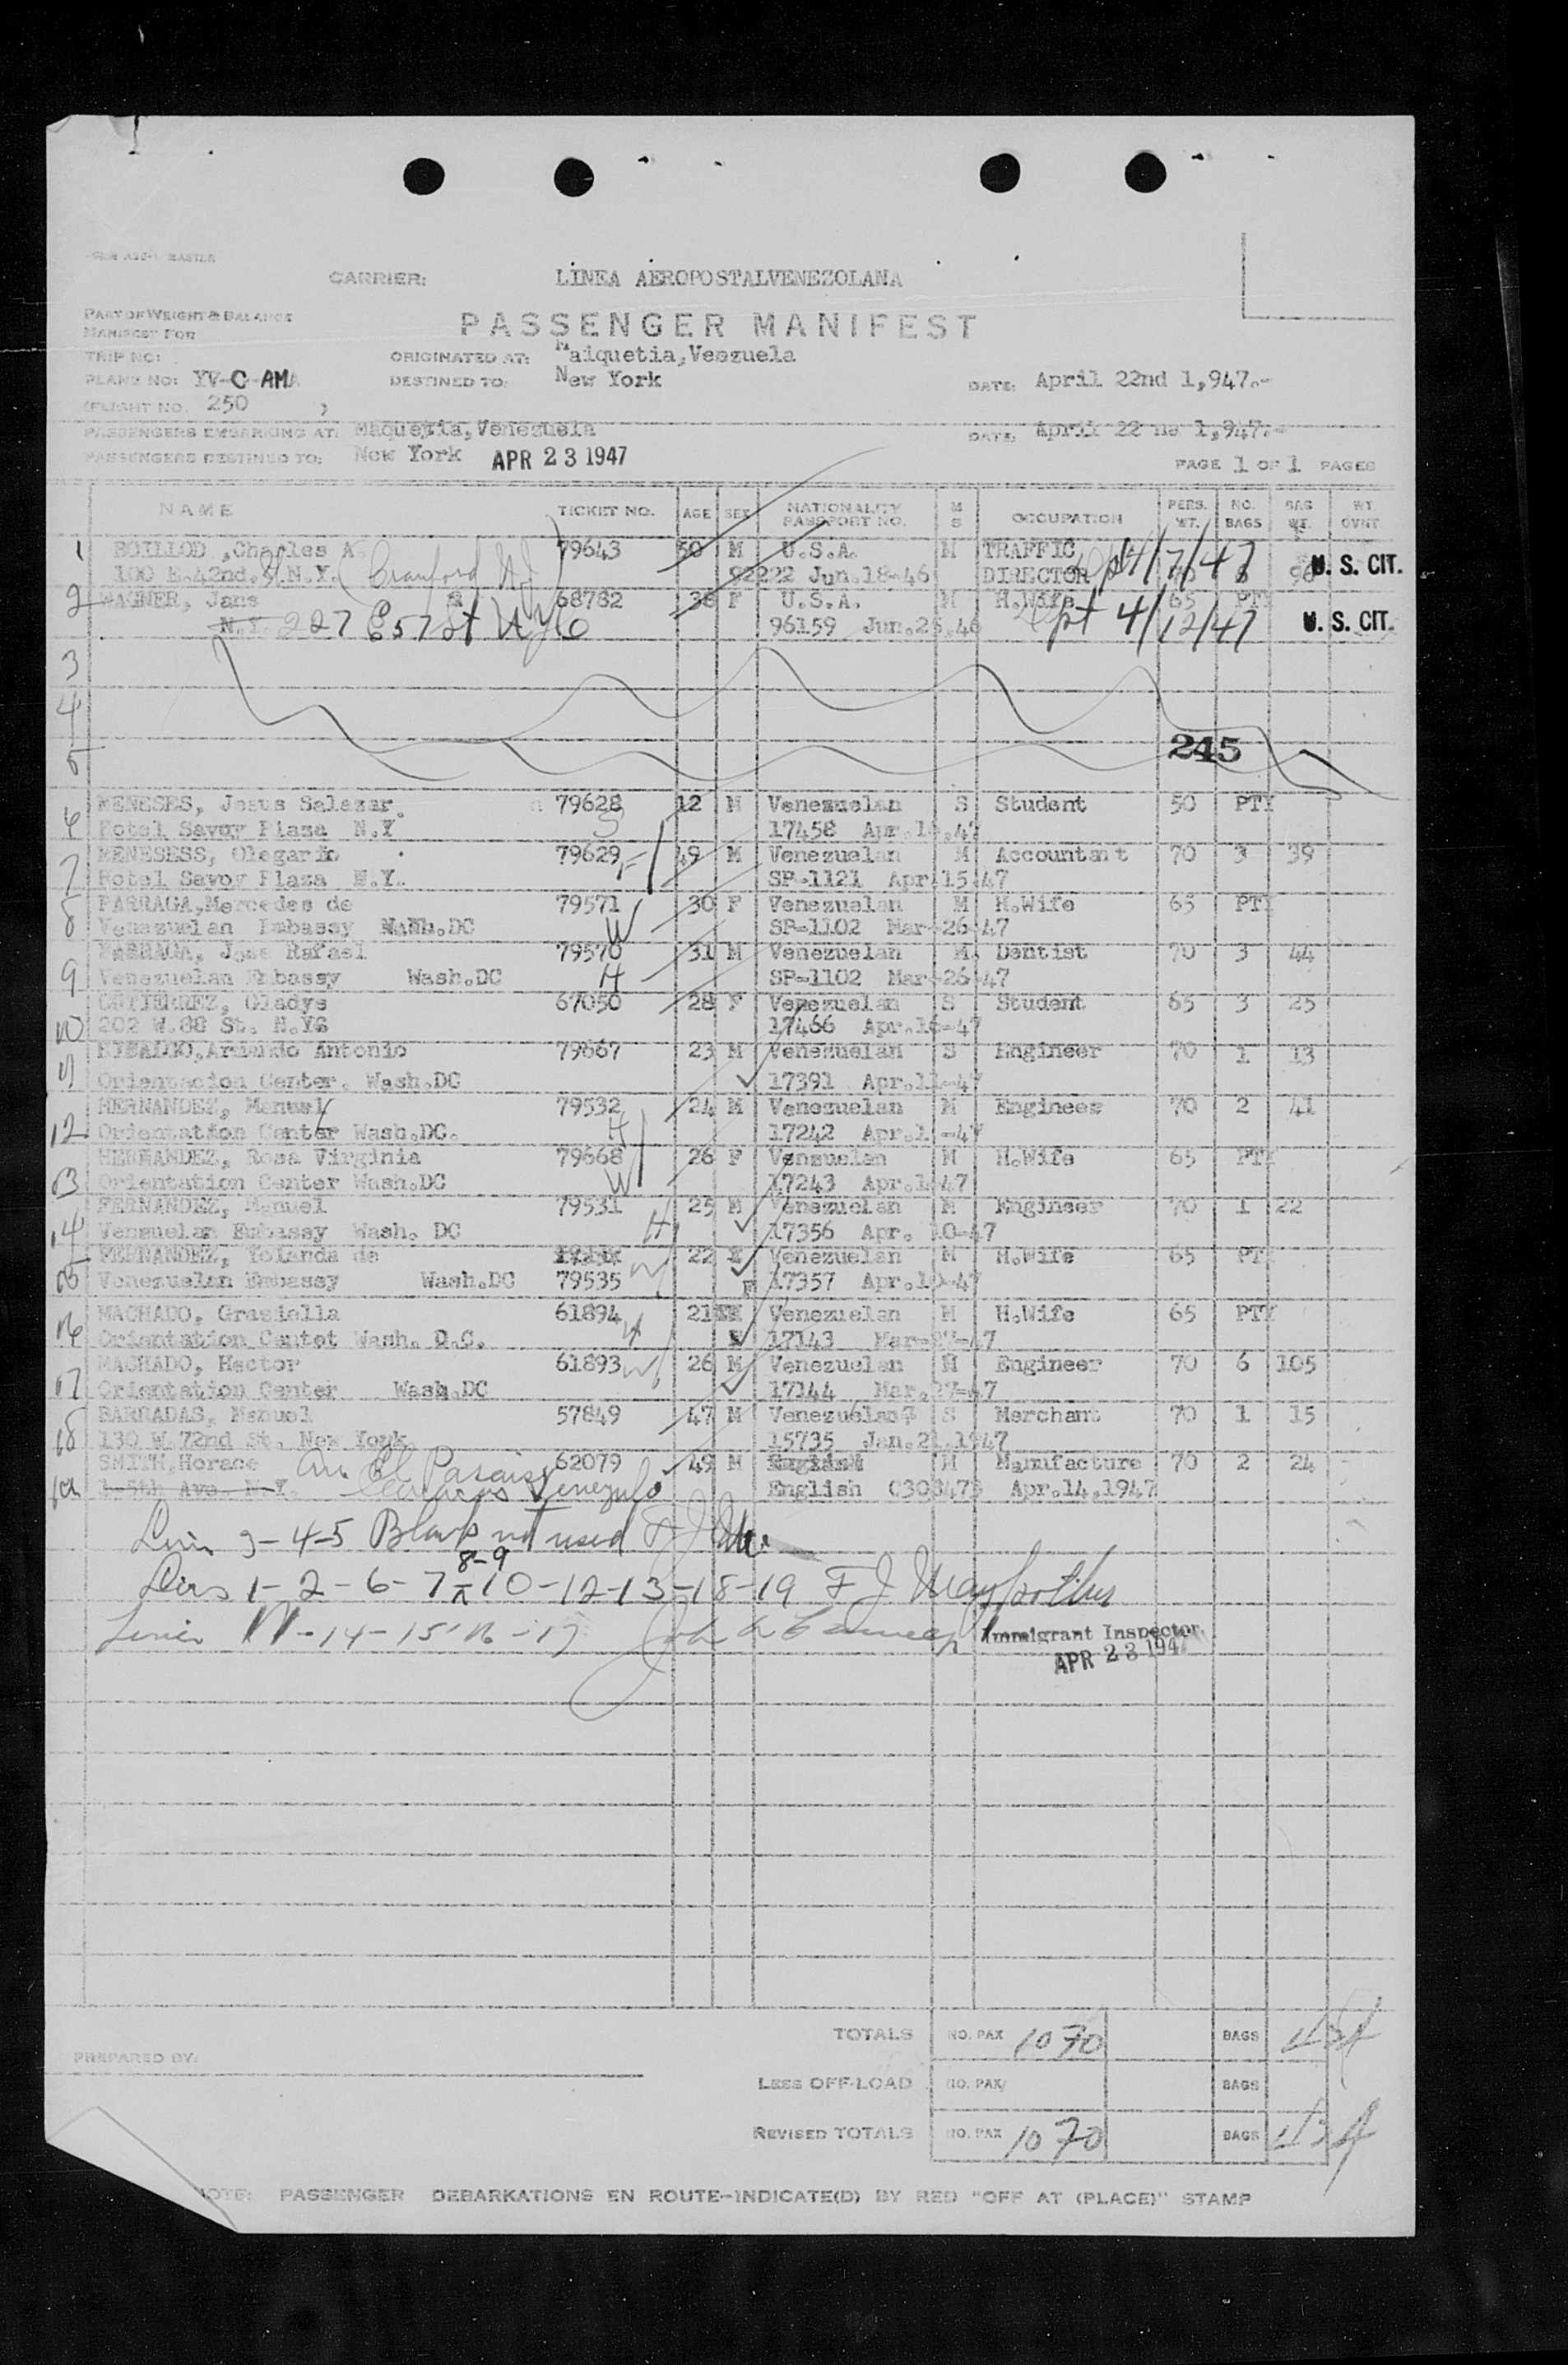 CARRIER: LINEA AEROPOSTALVENEZOLANA
PART OF WEIGHT & BALANCE
MANIFEST FOR
PASSENGER MANIFEST
TRIP NO: ORIGINATED AT: Maiquetia, Venzuela
PLANE NO: YV-C-AMA DESTINED TO: New York DATE: April 22nd 1,947.-
(FLIGHT NO. 250 )
PASSENGERS EMBARKING AT: Maquetia, Venezuela DATE: April 22 nd 1,947.-
PASSENGERS DESTINED TO: New York APR 23 1947 PAGE 1 OF 1 PAGES
NAME TICKET NO. AGE SEX NATIONALITY PASSPORT NO. M S OCCUPATION PERS. WT. NO. BAGS BAG WT. WT OVNT
1 BOILLOD ,Charles A. 79643 50 M U.S.A. M TRAFFIC
100 E.42nd. St N.Y. (Cranford NJ) 92222 Jun.18-46 DIRECTOR Dpt 4/7/47 U. S. CIT.
2 WAGNER, Jane 68782 38 F U.S.A. M H.Wife 65 PTY
N.Y. 227 E 57 St NYC 96159 Jun.25.46 Dpt 4/12/47 U. S. CIT.
3
4
5 245
6 MENESES, Jesus Salazar. 79628 12 M Venezuelan S Student 50 PTY
Hotel Savoy Plaza N.Y. S 17458 Apr.15.47
7 MENESESS, Olegario 79629 F 49 M Venezuelan M Accountant 70 3 39
Hotel Savoy Plaza N.Y. SP-1121 Apr.15.47
8 PARRAGA,Mercedes de 79571 30 F Venezuelan M H.Wife 65 PTY
Venezuelan Embassy Wash.DC W SP-1102 Mar-26-47
9 PARRAGA, Jose Rafael 79570 31 M Venezuelan M Dentist 70 3 44
Venezuelan Embassy Wash.DC H SP-1102 Mar-26-47
10 GUTIERREZ, Gladys 67050 28 F Venezuelan S Student 65 3 25
202 W.88 St. N.Y. 17466 Apr.16-47
11 Armando Antonio 79667 23 M Venezuelan S Engineer 70 1 13
Orientacion Center. Wash.DC 17391 Apr.11-47
12 HERNANDEZ, Manuel 79532 24 M Venezuelan M Engineer 70 2 41
Orientation Center Wash.DC. H 17242 Apr.1-47
13 HERNANDEZ, Rosa Virginia 79668 26 F Venzuelan M H.Wife 65 PTY
Orientation Center Wash.DC W 17243 Apr.1-47
14 FERNANDEZ, Manuel 79531 25 M Venezuelan M Engineer 70 1 22
Venzuelan Embassy Wash. DC H 17356 Apr. 10-47
15 FERNANDEZ, Yolanda de 22 Venezuelan M H.Wife 65 PTY
Venezuelan Embassy Wash.DC 79535 W F 17357 Apr.10-47
16 MACHADO, Grasiella 61894 21 Venezuelan M H.Wife 65 PTY
Orientation Centet Wash. D.C. 17143 Mar-27-47
17 MACHADO, Hector 61893 26 M Venezuelan M Engineer 70 6 105
Orientation Center Wash.DC 17144 Mar.27-47
18 BARRADAS, Manuel 57849 47 M Venezuelan S Merchant 70 1 15
130 W.72nd St. New York 15735 Jan.21.1947
19 SMITH,Horace Av. El Paraiso 62079 49 M English M Manufacture 70 2 24
1-5th Ave. N.Y. Caracas Venezuela English C308473 Apr.14,1947
Lines 3-4-5 Blank not used
8-9
Lines 1-2-6-7-10-12-13-18-19
Lines 11-14-15-16-17 Immigrant Inspector
APR 23 194
TOTALS NO. PAX 1070 BAGS 434
PREPARED BY:
LESS OFF-LOAD NO. PAX BAGS
REVISED TOTALS NO. PAX 1070 BAGS 434
NOTE: PASSENGER DEBARKATIONS EN ROUTE-INDICATE(D) BY RED "OFF AT (PLACE)" STAMP